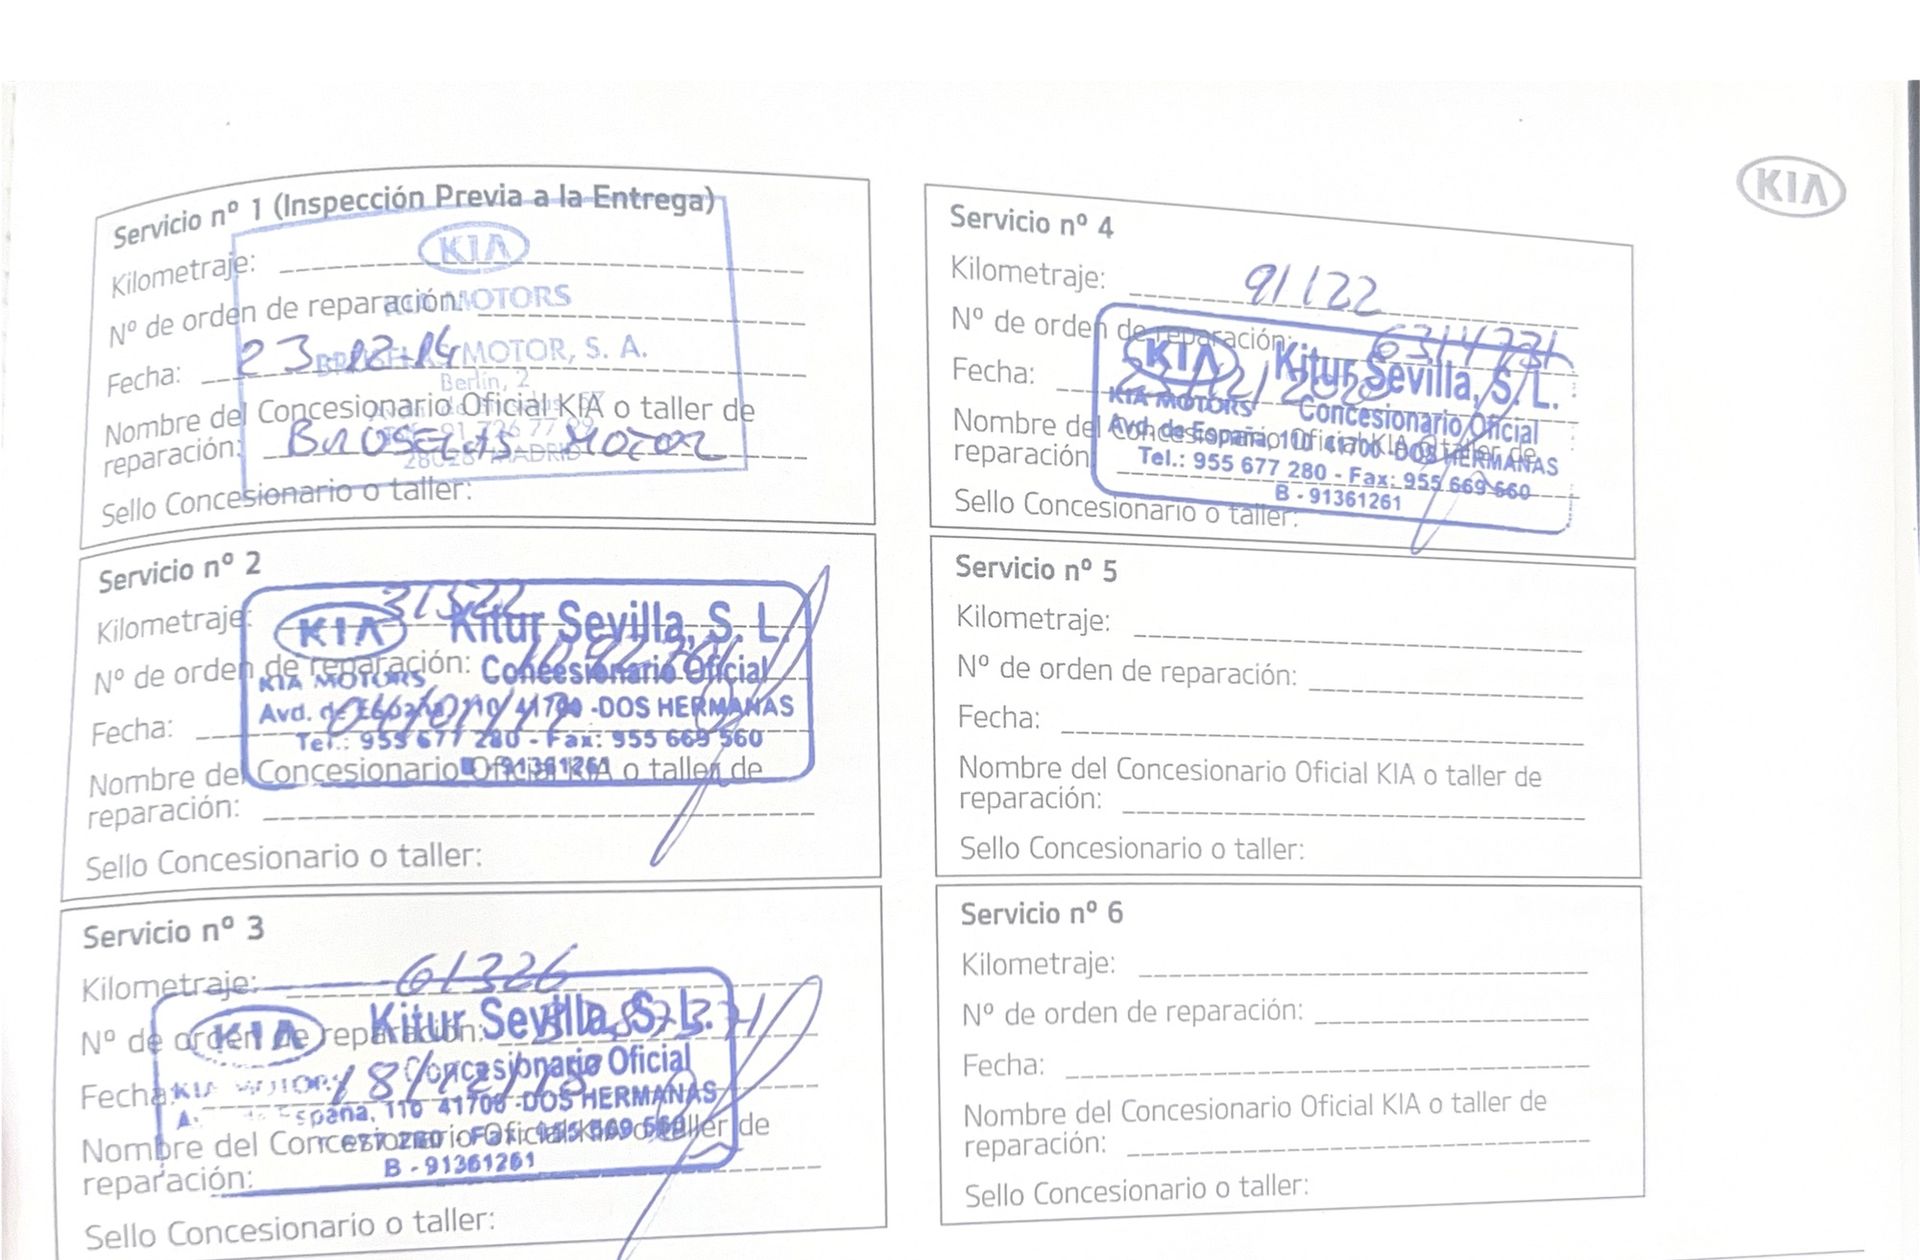 KIA
Servicio nº 1 (Inspección Previa a la Entrega)
KIA
Kilometraje:
Nº de orden de reparación:
KIA MOTORS
Fecha: 23-12-14
MOTOR, S. A.
Berlín, 2
Nombre del Concesionario Oficial KIA o taller de
reparación: BRUSELAS MOTOR
28028 - MADRID
Sello Concesionario o taller:
Servicio nº 2
Kilometraje: 31522
KIA Kitur Sevilla, S. L.
Nº de orden de reparación:
KIA MOTORS Concesionario Oficial
Avd. de España, 110 41700 -DOS HERMANAS
Fecha: 04/01/17
Tel.: 955 677 280 - Fax: 955 669 560
B - 91361261
Nombre del Concesionario Oficial KIA o taller de
reparación:
Sello Concesionario o taller:
Servicio nº 3
Kilometraje: 61326
KIA Kitur Sevilla, S. L.
Nº de orden de reparación:
Concesionario Oficial
Fecha: 18/12/18
KIA MOTORS
España, 110 41700 -DOS HERMANAS
677 280 - Fax: 955 669 560
Nombre del Concesionario Oficial KIA o taller de
B - 91361261
reparación:
Sello Concesionario o taller:
Servicio nº 4
Kilometraje: 91122
Nº de orden de reparación: 6314731
KIA Kitur Sevilla, S. L.
Fecha: /12/2020
KIA MOTORS Concesionario Oficial
Nombre del Concesionario Oficial KIA o taller de
Avd. de España, 110 41700 -DOS HERMANAS
reparación
Tel.: 955 677 280 - Fax: 955 669 560
B - 91361261
Sello Concesionario o taller:
Servicio nº 5
Kilometraje:
Nº de orden de reparación:
Fecha:
Nombre del Concesionario Oficial KIA o taller de
reparación:
Sello Concesionario o taller:
Servicio nº 6
Kilometraje:
Nº de orden de reparación:
Fecha:
Nombre del Concesionario Oficial KIA o taller de
reparación:
Sello Concesionario o taller: